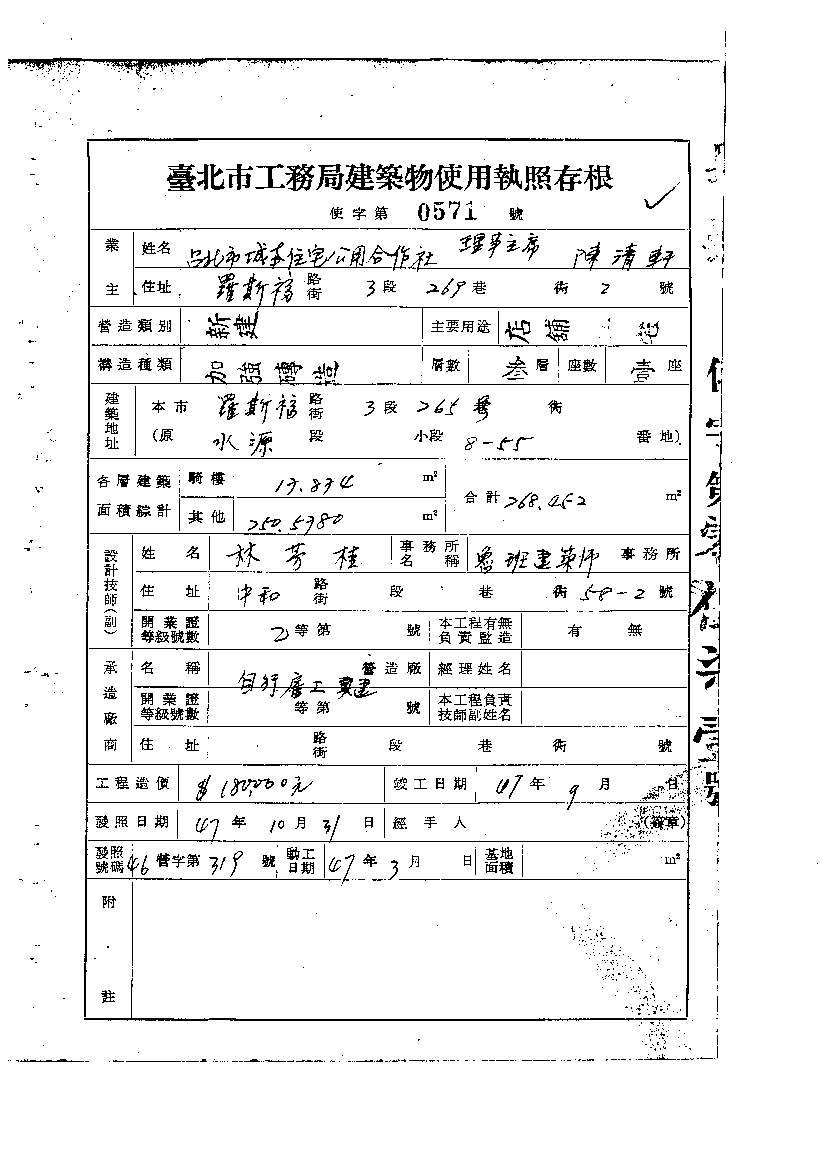 臺北市工務局建築物使用執照存根
使字第 0571 號
業主 姓名 台北市城東住宅公用合作社 理事主席 陳清軒
住址 羅斯福 路街 3段 269巷 衖 2 號
營造類別 新建 主要用途 店舖
構造種類 加強磚造 層數 叁層 座數 壹座
建築地址 本市 羅斯福 路街 3段 265巷 衖
(原 水源 段 小段 8-55 番地)
各層建築面積綜計 騎樓 17.874 m² 合計 268.452 m²
其他 250.5780 m²
設計技師(副) 姓名 林芳桂 事務所名稱 魯班建築師 事務所
住址 中和 路街 段 巷 衖 58-2 號
開業證等級號數 乙等第 號 本工程有無負責監造 有 無
承造廠商 名稱 自行雇工興建 營造廠 經理姓名
開業證等級號數 等第 號 本工程負責技師副姓名
住址 路街 段 巷 衖 號
工程造價 $180,000元 竣工日期 47年 9月 日
發照日期 47年 10月 31日 經手人 (簽章)
發照號碼 46營字第 319 號 動工日期 47年 3月 日 基地面積 m²
附註